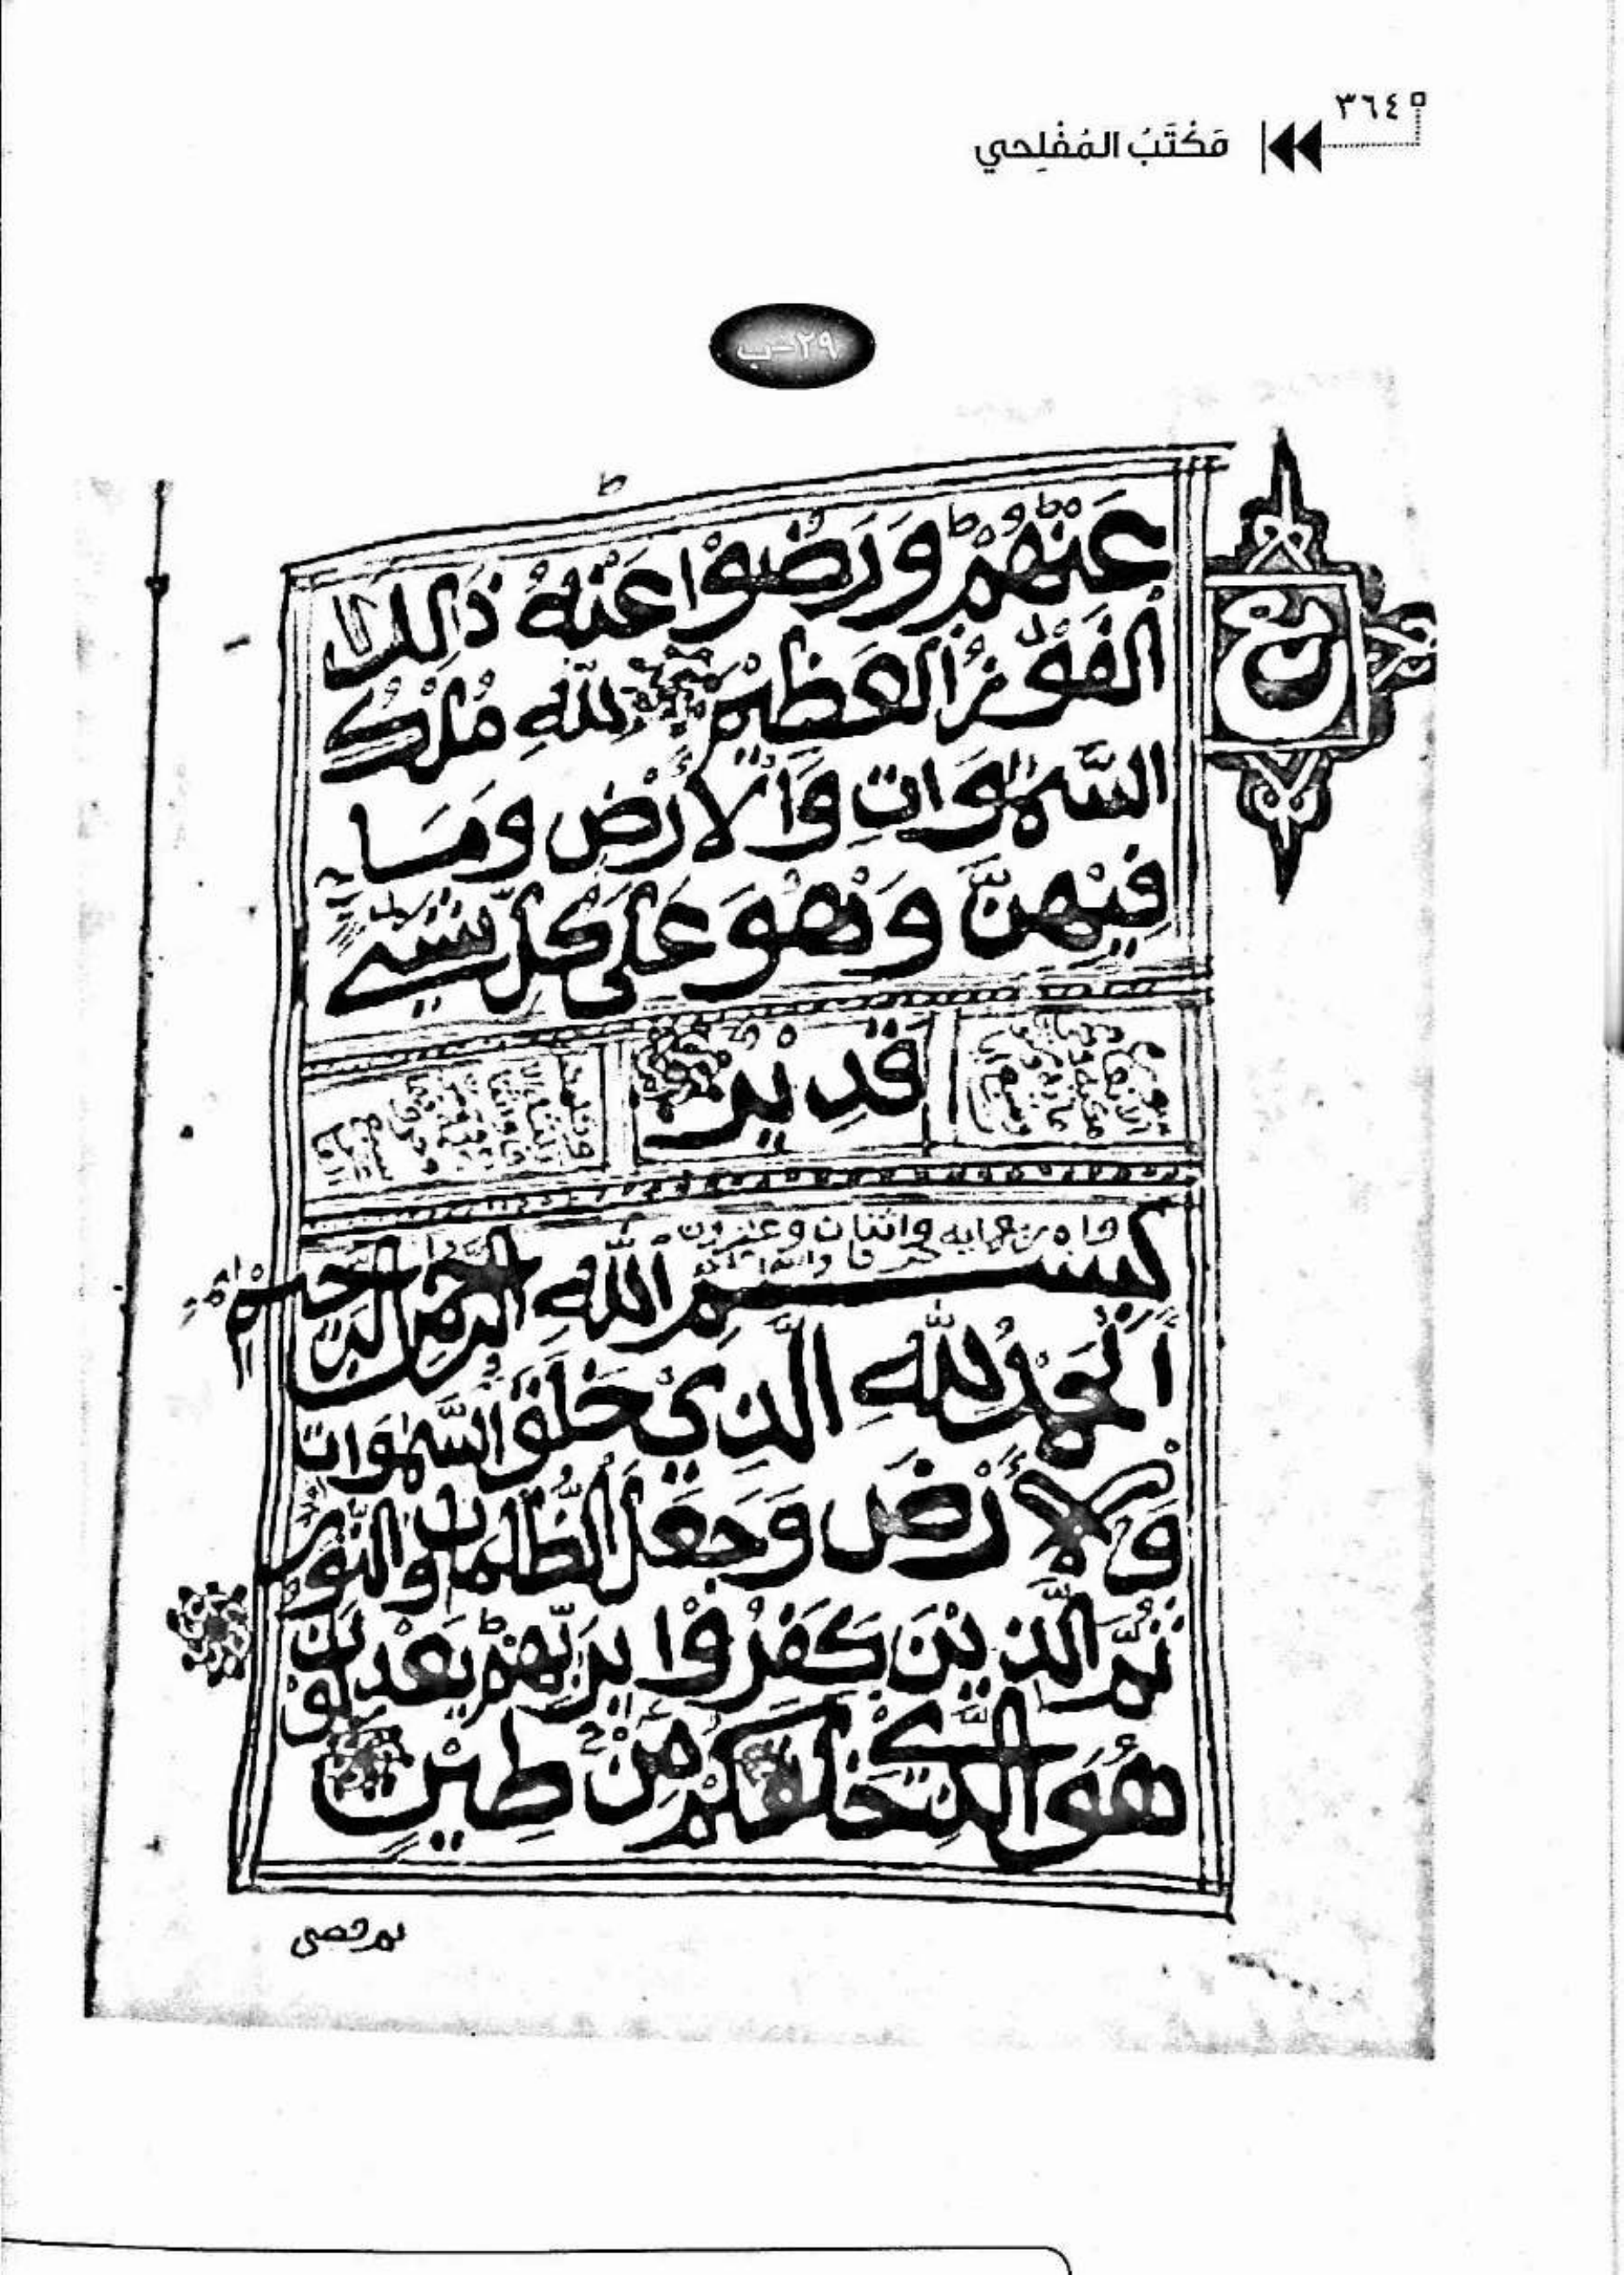 ٣٦٤
مَكْتَبُ المُفْلِحي
٢٩-ب
ط
عَنْهُمْ وَرَضُوْا عَنْهُ ذٰلِكَ
الْفَوْزُ الْعَظِيْمُ لِلّٰهِ مُلْكُ
السَّمٰوَاتِ وَالْاَرْضِ وَمَا
فِيْهِنَّ وَهُوَ عَلٰى كُلِّ شَيْءٍ
ع
قَدِيْرٌ
وعشرون واثنان
بِسْمِ اللّٰهِ الرَّحْمٰنِ الرَّحِيْمِ
اَلْحَمْدُ لِلّٰهِ الَّذِيْ خَلَقَ السَّمٰوَاتِ
وَالْاَرْضَ وَجَعَلَ الظُّلُمَاتِ وَالنُّوْرَ
ثُمَّ الَّذِيْنَ كَفَرُوْا بِرَبِّهِمْ يَعْدِلُوْنَ
هُوَ الَّذِيْ خَلَقَكُمْ مِنْ طِيْنٍ
ثم قضى